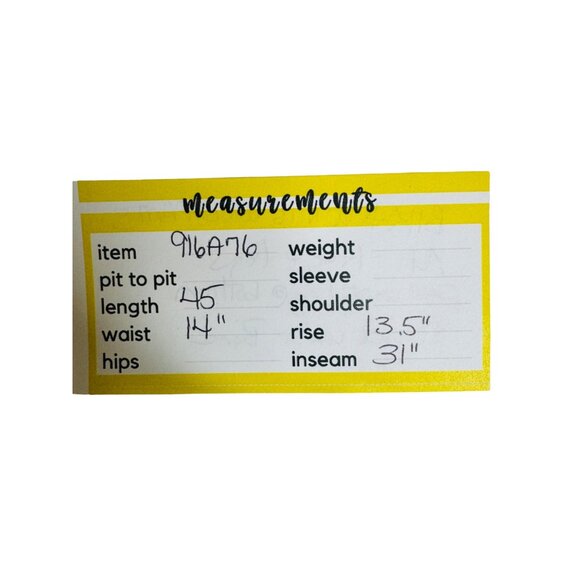 measurements
item 916A76
pit to pit
length 45
waist 14"
hips
weight
sleeve
shoulder
rise 13.5"
inseam 31"